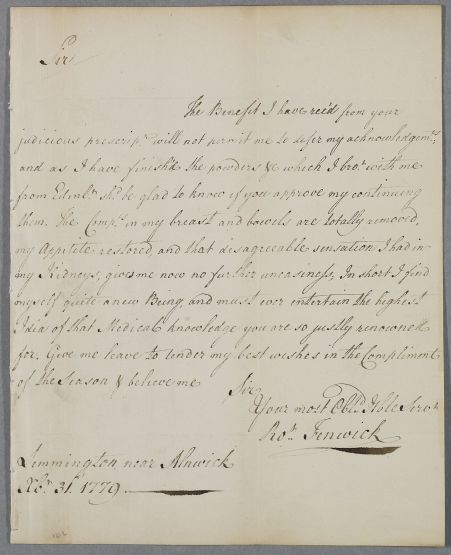 Sir
The Benefit I have rec'd from your
judicious prescrip.ns will not permit me to defer my acknowledgem.ts,
and as I have finish'd the powders &c which I bro.t with me
from Edinb.r sh.d be glad to know if you approve my continuing
them. The Comp.t in my breast and bowels are totally removed,
my Appetite restored, and that desagreeable sensation I had in
my Kidneys, gives me now no further uneasiness, In short I find
myself quite a new Being, and must ever intertain the highest
Idea of that Medical knowledge you are so justly renowned
for. Give me leave to tender my best wishes in the Compliment
of the Season & believe me
Sir
Your most Obl.d H'ble Serv.t
Ro.t Fenwick
Lemmington, near Alnwick
Xb.r 31.st 1779